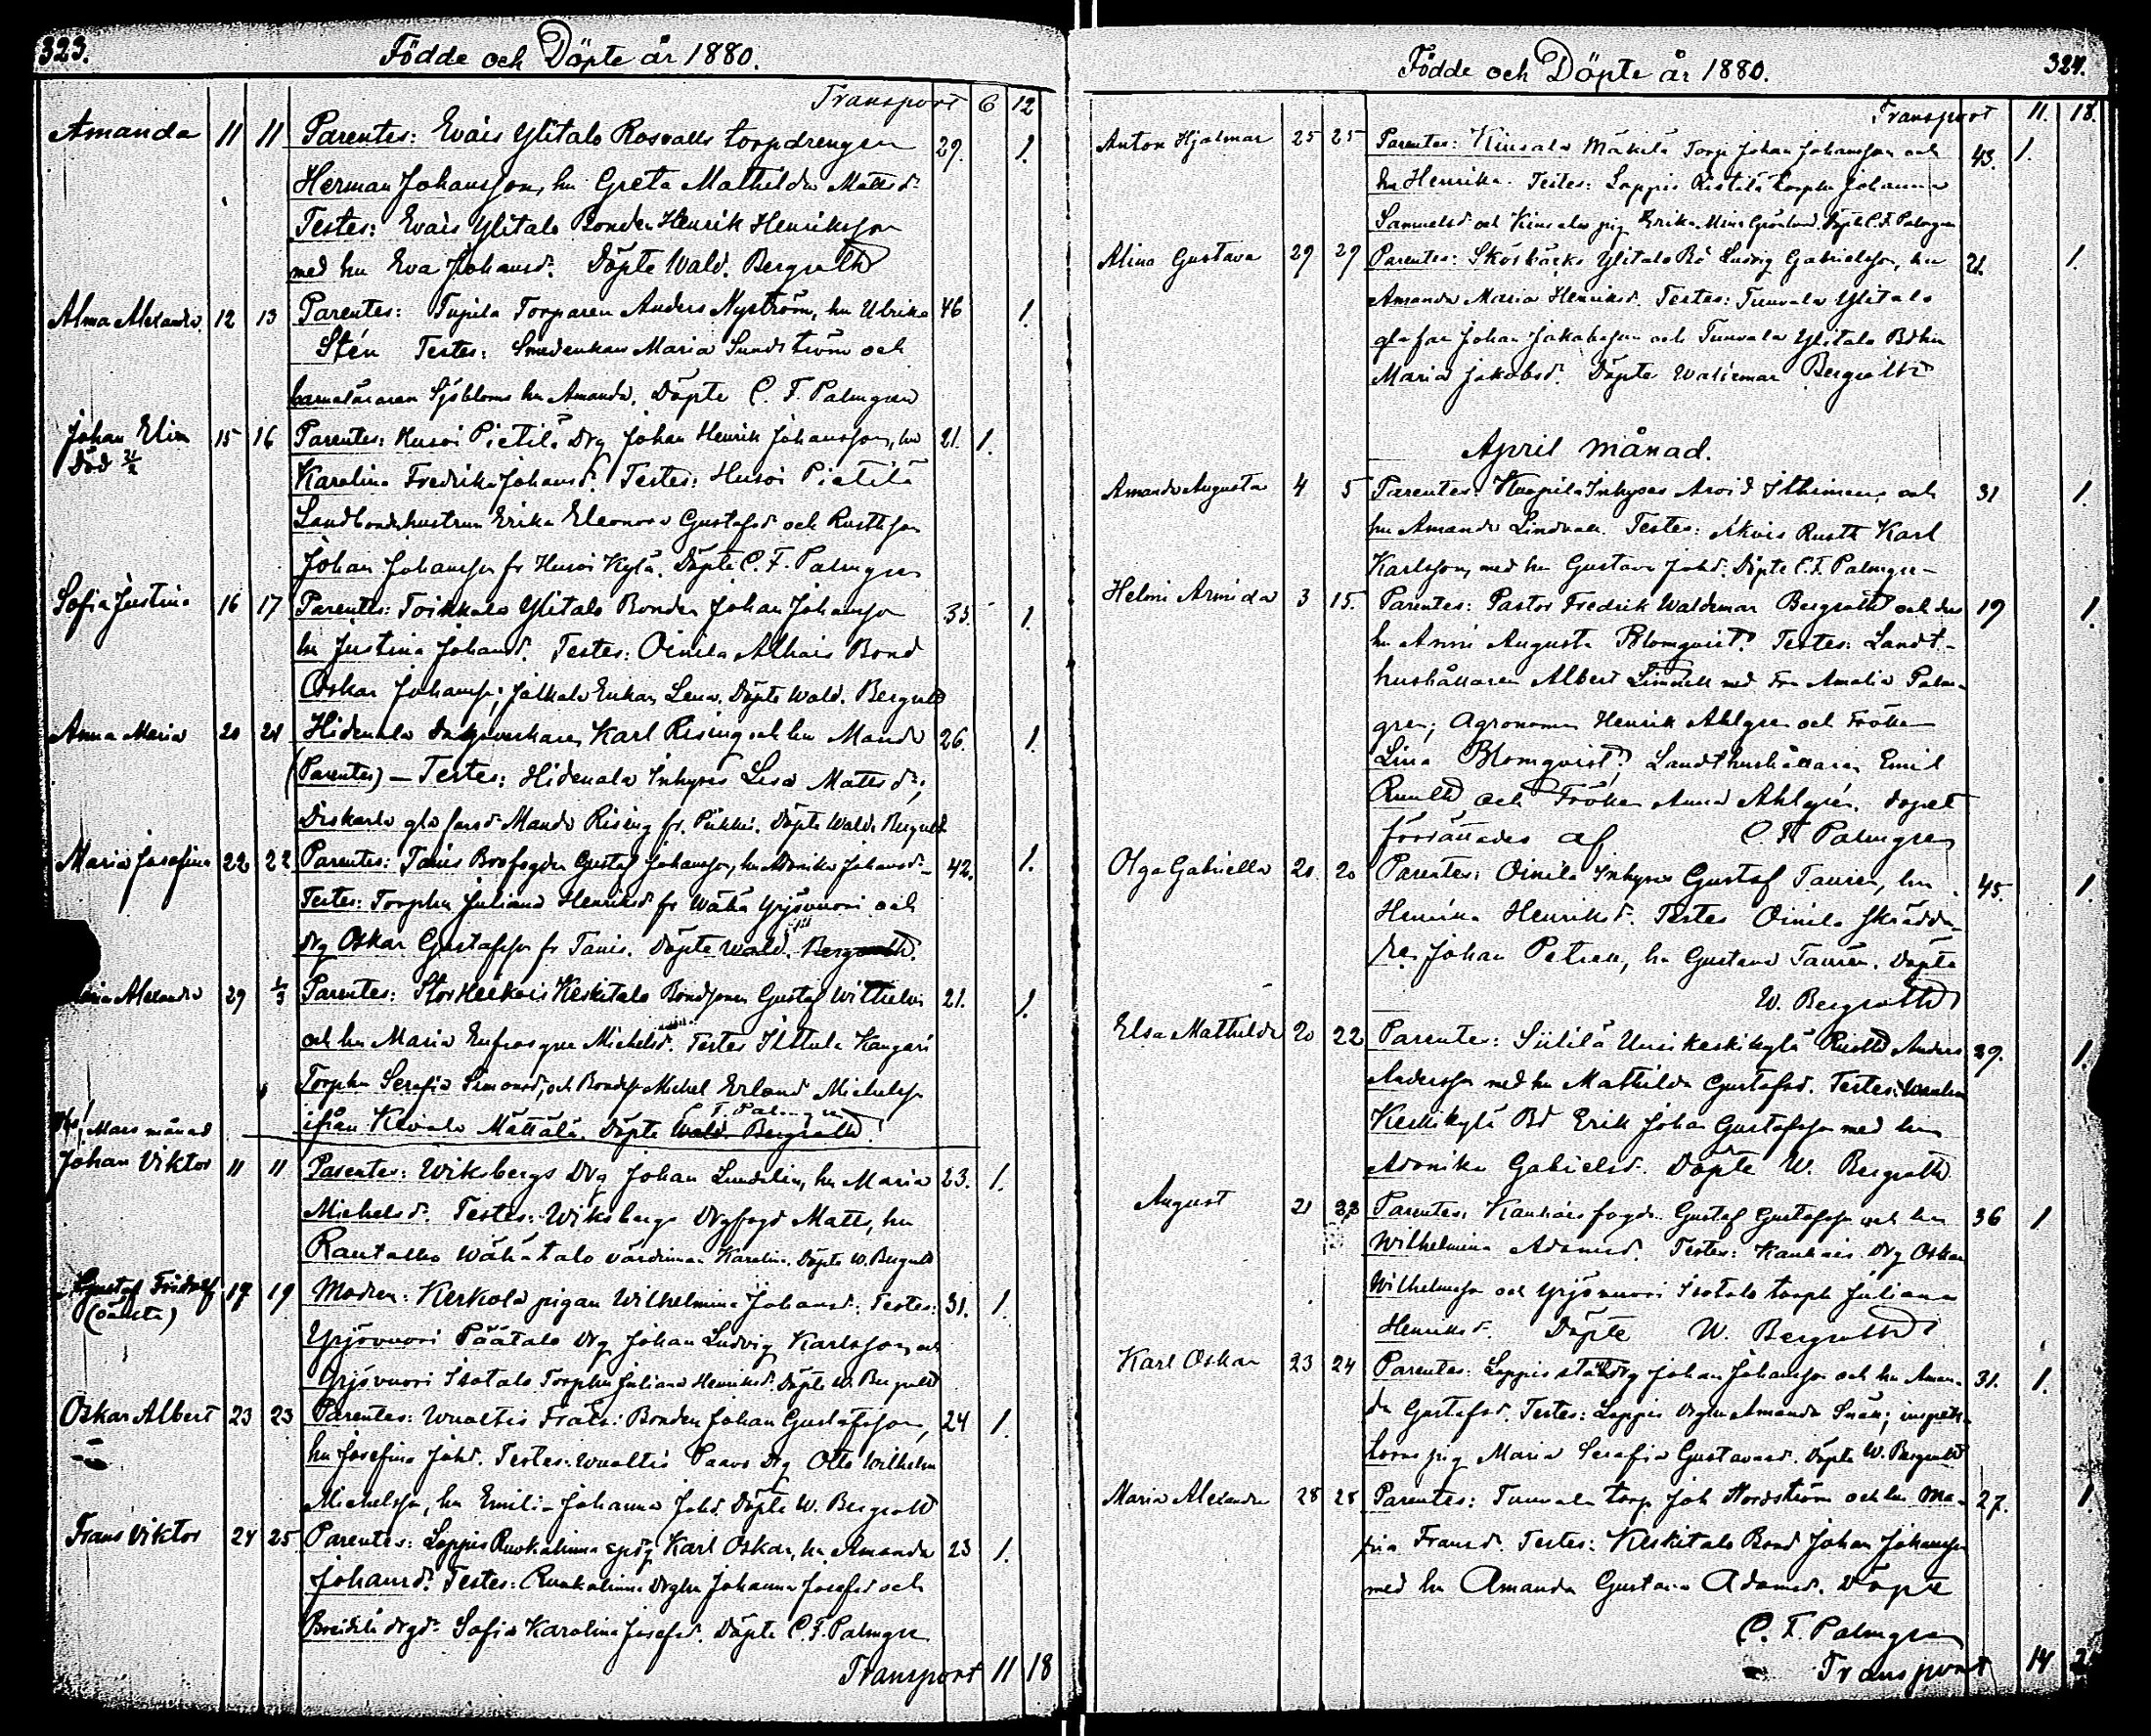 323.
Födde och Döpte år 1880.
Transport 6 12
Amanda 11 11 Parentes: Evais Ylitalo Rosvalls torpdrengen 29. 1.
Herman Johansson, hu Greta Mathilda Mattsdr.
Testes: Evais Ylitalo Bonden Henrik Henriksson
med hu Eva Johansdr. Döpte Wald. Bergroth
Alma Alexandra 12 13 Parentes: Torparen Anders Nyström, hu Ulrika 46 1.
Stén Testes: Smedenkan Maria Sundström och
barnaläraren Sjöbloms hu Amanda. Döpte C. F. Palmgren
Johan Elim 15 16 Parentes: Husoi Pietilä Drg Johan Henrik Johansson, hu 21. 1.
Död
Karolina Fredrika Johansd. Testes: Husoi Pietilä
Landbondehustrun Erika Eleonora Gustafsd och Rustths
Johan Johansson fr Husoi Kylä. Döpte C. F. Palmgren
Sofia Justina 16 17 Parentes: Toikkala Ylitalo Bonden Johan Johansson 35. 1.
hu Justina Johansd. Testes: Oinila Alhais Bond
Oskar Johanss; Jalkala Enkan Lena. Döpte Wald. Bergroth
Anna Maria 20 21 Hidenala Karl Rising och hu Manda 26. 1.
(Parentes) — Testes: Hidenala Inhyses Lisa Mattsdr;
Diskarla Manda Rising fr. Pikkis. Döpte Wald. Bergroth
Maria Josefina 22 22 Parentes: Tanis Brofogden Gustaf Johansson, hu Adonika Johansdr 42. 1.
Testes: Torphu Juliana Henriksd fr Wähä Yrjövuori och
drg Oskar Gustafsson fr Tanis. Döpte Wald. Bergroth.
Alexandra 29 1/3 Parentes: Stor Heikois Keskitalo Bondsonen Gustaf Wilhelm 21. 1.
och hu Maria Eufrosyne Michelsd. Testes Ihttula Kangari
Torphu Serafia Simonsd, och Bonds Michel Erland Michelss
ifrån Kevola Mättälä. Döpte Wald. Bergroth.
C. F. Palmgren
Mars månad
Johan Viktor 11 11 Parentes: Wiksbergs Drg Johan Lundelin, hu Maria 23. 1.
Michelsd. Testes: Wiksbergs Matts, hu
Rantalko Wähätalo värdinnan Karolina. Döpte W. Bergroth
Gustaf Fridolf 17 19 Modren: Kerkola pigan Wilhelmina Johansd. Testes: 31. 1.
(oäkta)
Yrjövuori Päätalo Drg Johan Ludvig Karlsson, och
Yrjövuori Isotalo Torphu Juliana Henriksd. Döpte W. Bergroth
Oskar Albert 23 23 Parentes: Wualtis Bonden Johan Gustafsson, 24 1.
hu Josefina Johd. Testes: Wualtis Paavo Drg Otto Wilhelm
Michelsson, hu Emilia Johanna Johd. Döpte W. Bergroth
Frans Viktor 24 25 Parentes: Loppis Ruokalinna Karl Oskar, hu Amanda 23 1.
Johansd. Testes: Ruokalinna Drghu Johanna Josefsd och
Sofia Karolina Josefsd. Döpte C. F. Palmgren
Transport 11 18
324.
Födde och Döpte år 1880.
Transport 11. 18.
Anton Hjalmar 25 25 Parentes: Kinsala Mäkilä Torp Johan Johansson och 43. 1.
hu Henrika. Testes: Loppis Ristilä torphu Johanna
Samuelsd och Kinsala pig Erika Mina Grönlund. Döpte C. F. Palmgren
Alina Gustava 29 29 Parentes: Ylitalo Ludvig Gabrielsson, hu 21. 1.
Amanda Maria Henriksd. Testes: Tunvala Ylitalo
Johan Jakobsson och Tunvala Ylitalo Bdhu
Maria Jakobsd. Döpte Waldemar Bergroth
April månad.
Amanda Augusta 4 5 Parentes: Inhyses Arvid Ithimen och 31 1.
hu Amanda Lindvall. Testes: Akois Rusth Karl
Karlsson, med hu Gustava Johd. Döpte C. F. Palmgren
Helmi Armida 3 15. Parentes: Pastor Fredrik Waldemar Bergroth och dess 19 1.
hu Anni Augusta Blomqvist. Testes: Landt-
hushållaren Albert Limnell med Fru Amalia Palm-
gren; Agronomen Henrik Ahlgren och Fröken
Lina Blomqvist, Landthushållaren Emil
och Fröken Anna Ahlgrén. Dopet
förrättades af C. F. Palmgren
Olga Gabriella 20. 20 Parentes: Oinila Inhyses Gustaf Taurén, hu 45. 1.
Henrika Henriksd. Testes Oinila skrädda-
ren Johan Petrell, hu Gustava Taurén. Döpte
W. Bergroth
Elsa Mathilda 20 22 Parentes: Siitilä Uusikeskikylä Rusth Anders 29. 1.
Andersson med hu Mathilda Gustafsd. Testes:
Keskikylä Bd Erik Johan Gustafsson med hu
Adonika Gabrielsd. Döpte W. Bergroth
August 21 23 Parentes: Kankais fogde Gustaf Gustafsson och hu 36 1
Wilhelmina Adamsd. Testes: Kankais Drg Oskar
Wilhelmsson och Yrjövuori Isotalo torph Juliana
Henriksd. Döpte W. Bergroth
Karl Oskar 23 24 Parentes: Loppis Johan Johansson och hu Aman- 31. 1.
da Gustafsd. Testes: Loppis Drghu Amanda; inspek-
torns pig Maria Serafia Gustavsd. Döpte W. Bergroth
Maria Alexandra 28 28 Parentes: Tunvala torp Joh Nordström och hu Ma- 27. 1
ria Fransd. Testes: Keskitalo Bond Johan Johansson
med hu Amanda Gustava Adamsd. Döpte
C. F. Palmgren
Transport 14